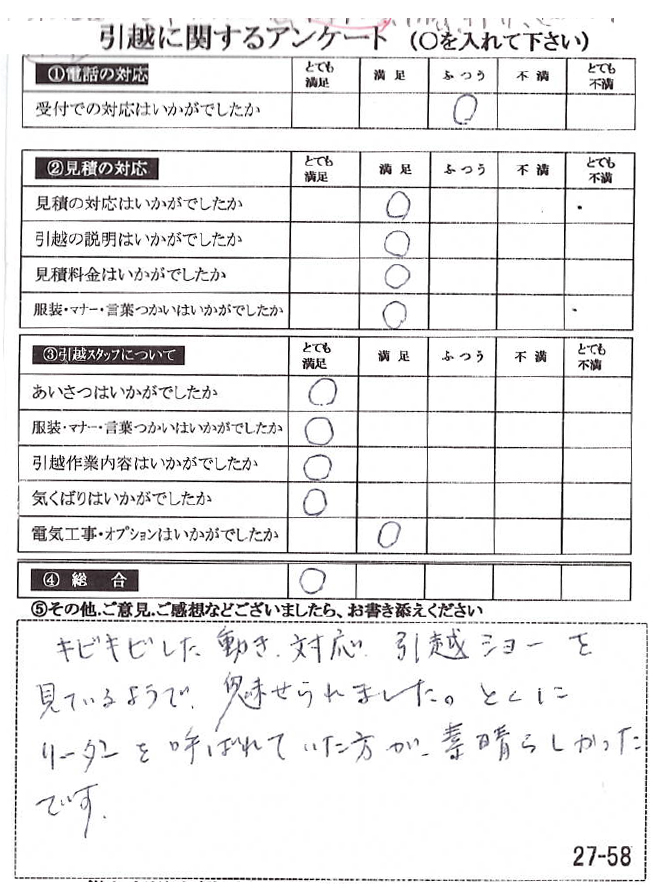 引越に関するアンケート （〇を入れて下さい）
①電話の対応 とても満足 満足 ふつう 不満 とても不満
受付での対応はいかがでしたか 〇
②見積の対応 とても満足 満足 ふつう 不満 とても不満
見積の対応はいかがでしたか 〇
引越の説明はいかがでしたか 〇
見積料金はいかがでしたか 〇
服装・マナー・言葉つかいはいかがでしたか 〇
③引越スタッフについて とても満足 満足 ふつう 不満 とても不満
あいさつはいかがでしたか 〇
服装・マナー・言葉つかいはいかがでしたか 〇
引越作業内容はいかがでしたか 〇
気くばりはいかがでしたか 〇
電気工事・オプションはいかがでしたか 〇
④ 総 合 〇
⑤その他.ご意見.ご感想などございましたら、お書き添えください
キビキビした動き、対応、引越ショーを
見ているようで、魅せられました。とくに
リーダーと呼ばれていた方が、素晴らしかった
です.
27-58